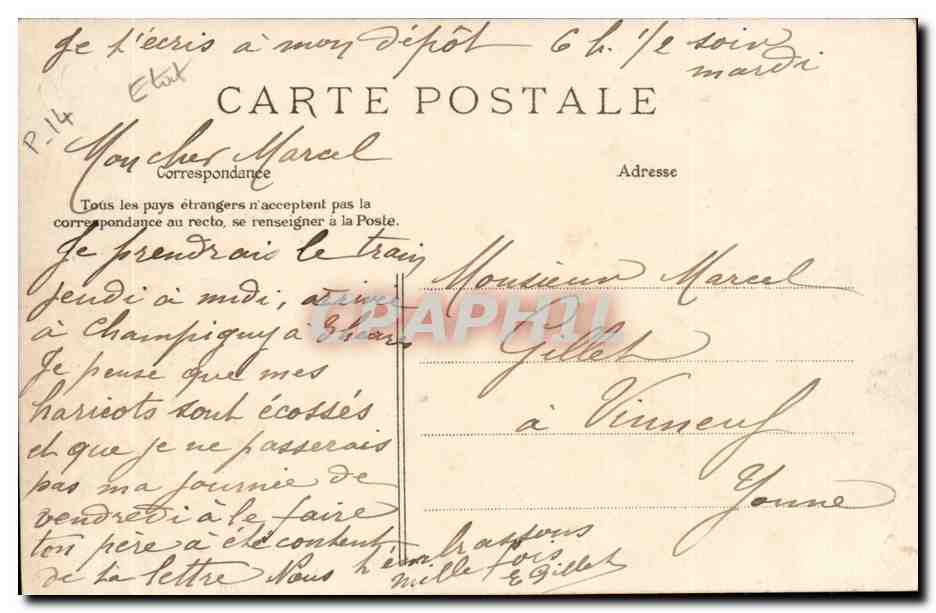 Je t'écris à mon dépôt 6 h. 1/2 soir
mardi
Etat
P-14
CARTE POSTALE
Mon cher Marcel
Correspondance
Adresse
Tous les pays étrangers n'acceptent pas la
correspondance au recto, se renseigner à la Poste.
Je prendrais le train
jeudi à midi, arriver
à Champigny à 3 heures
Je pense que mes
haricots sont écossés
et que je ne passerais
pas ma journée de
vendredi à le faire
ton père à été content
de ta lettre Nous t'embrassons
mille fois
E Gillet
Monsieur Marcel
Gillet
à Vinneuf
Yonne
CPAPHIL